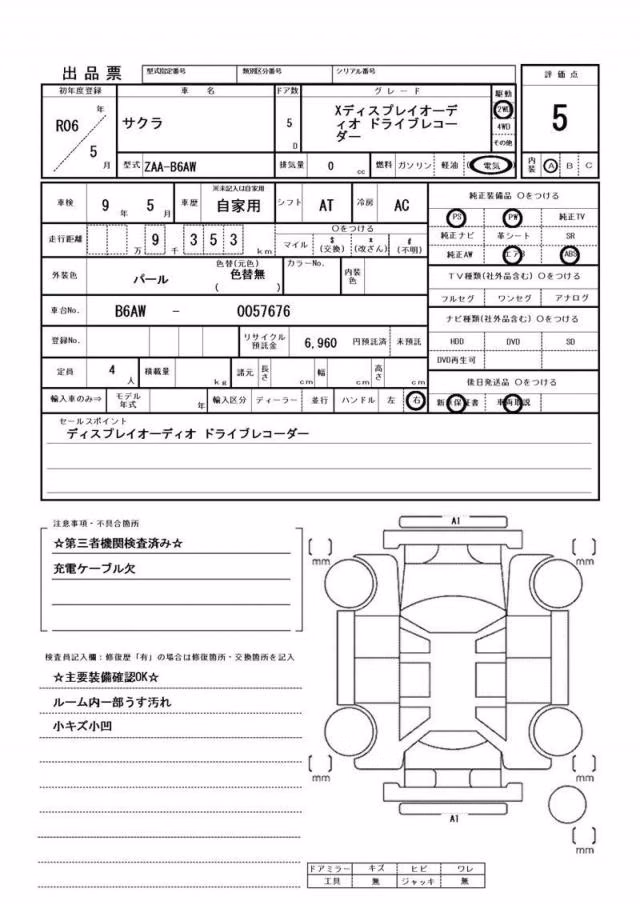 出品票 型式指定番号 類別区分番号 シリアル番号
初年度登録 車名 ドア数 グレード 駆動 評価点
R06 年 5 月 サクラ 5 D Xディスプレイオーディオ ドライブレコーダー 2WD 4WD その他 5
型式 ZAA-B6AW 排気量 0 cc 燃料 ガソリン 軽油 (電気) 内装 A B C
車検 9 年 5 月 車歴 ※未記入は自家用 自家用 シフト AT 冷房 AC 純正装備品 ○をつける
PS PW 純正TV
走行距離 万 9 千 3 5 3 km ○をつける マイル $ (交換) x (改ざん) # (不明)
純正ナビ 革シート SR
純正AW エアB ABS
外装色 パール 色替(元色) 色替無 ( ) カラーNo. 内装色
TV種類(社外品含む) ○をつける
フルセグ ワンセグ アナログ
車台No. B6AW - 0057676
ナビ種類(社外品含む) ○をつける
登録No. リサイクル預託金 6,960 円預託済 未預託
HDD DVD SD
DVD再生可
定員 4 人 積載量 kg 諸元 長さ cm 幅 cm 高さ cm
後日発送品 ○をつける
輸入車のみ⇒ モデル年式 年 輸入区分 ディーラー 並行 ハンドル 左 右
新車保証書 車両取説
セールスポイント
ディスプレイオーディオ ドライブレコーダー
注意事項・不具合箇所
☆第三者機関検査済み☆
充電ケーブル欠
検査員記入欄：修復歴「有」の場合は修復箇所・交換箇所を記入
☆主要装備確認OK☆
ルーム内一部うす汚れ
小キズ小凹
A1
[ ] mm [ ] mm
[ ] mm [ ] mm
A1
[ ] mm
ドアミラー キズ ヒビ ワレ
工具 無 ジャッキ 無